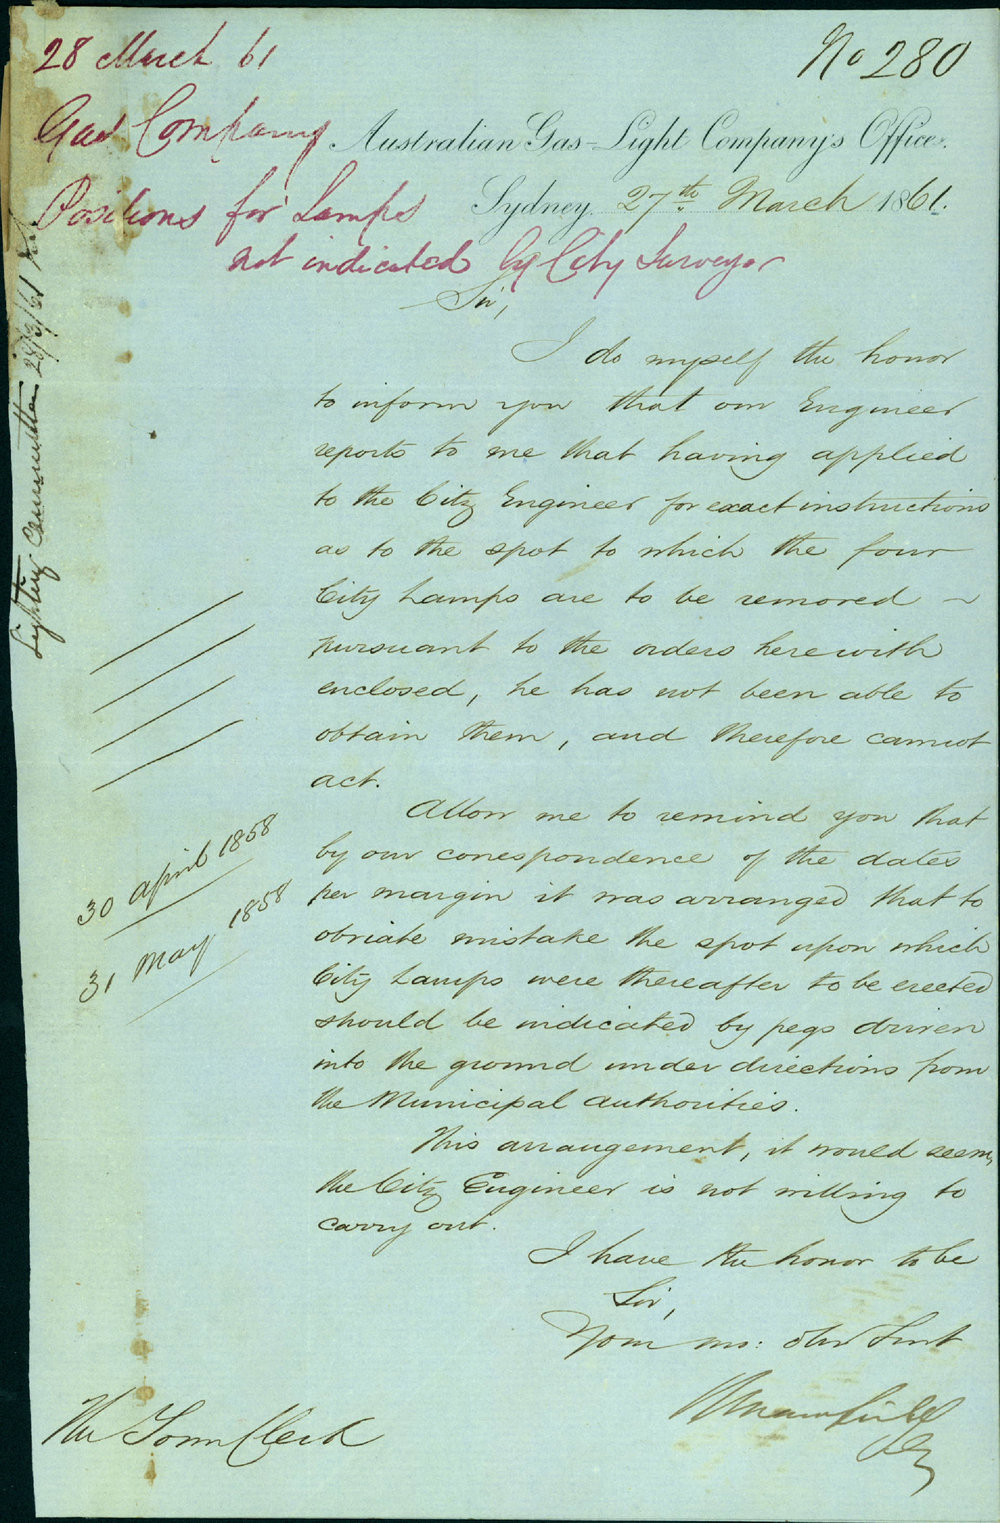 28 March 61
No 280
Gas Company
Australian Gas-Light Company's Office.
Positions for Lamps
Sydney. 27th March 1861.
not indicated by City Surveyor
Lighting Committee 28/3/61
Sir,
I do myself the honor
to inform you that our Engineer
reports to me that having applied
to the City Engineer for exact instructions
as to the spot to which the four
City Lamps are to be removed -
pursuant to the orders herewith
enclosed, he has not been able to
obtain them, and therefore cannot
act.
Allow me to remind you that
30 April 1858
by our correspondence of the dates
per margin it was arranged that to
31 May 1858
obviate mistake the spot upon which
City Lamps were thereafter to be erected
should be indicated by pegs driven
into the ground under directions from
the Municipal Authorities.
This arrangement, it would seem,
the City Engineer is not willing to
carry out.
I have the honor to be
Sir,
Your mo: obt Servt
The Town Clerk